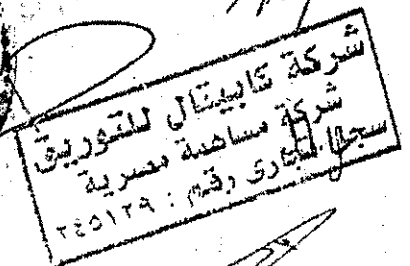 شركة كابيتال للتوريق
شركة مساهمة مصرية
سجل تجارى رقم : ٢٤٥١٢٩